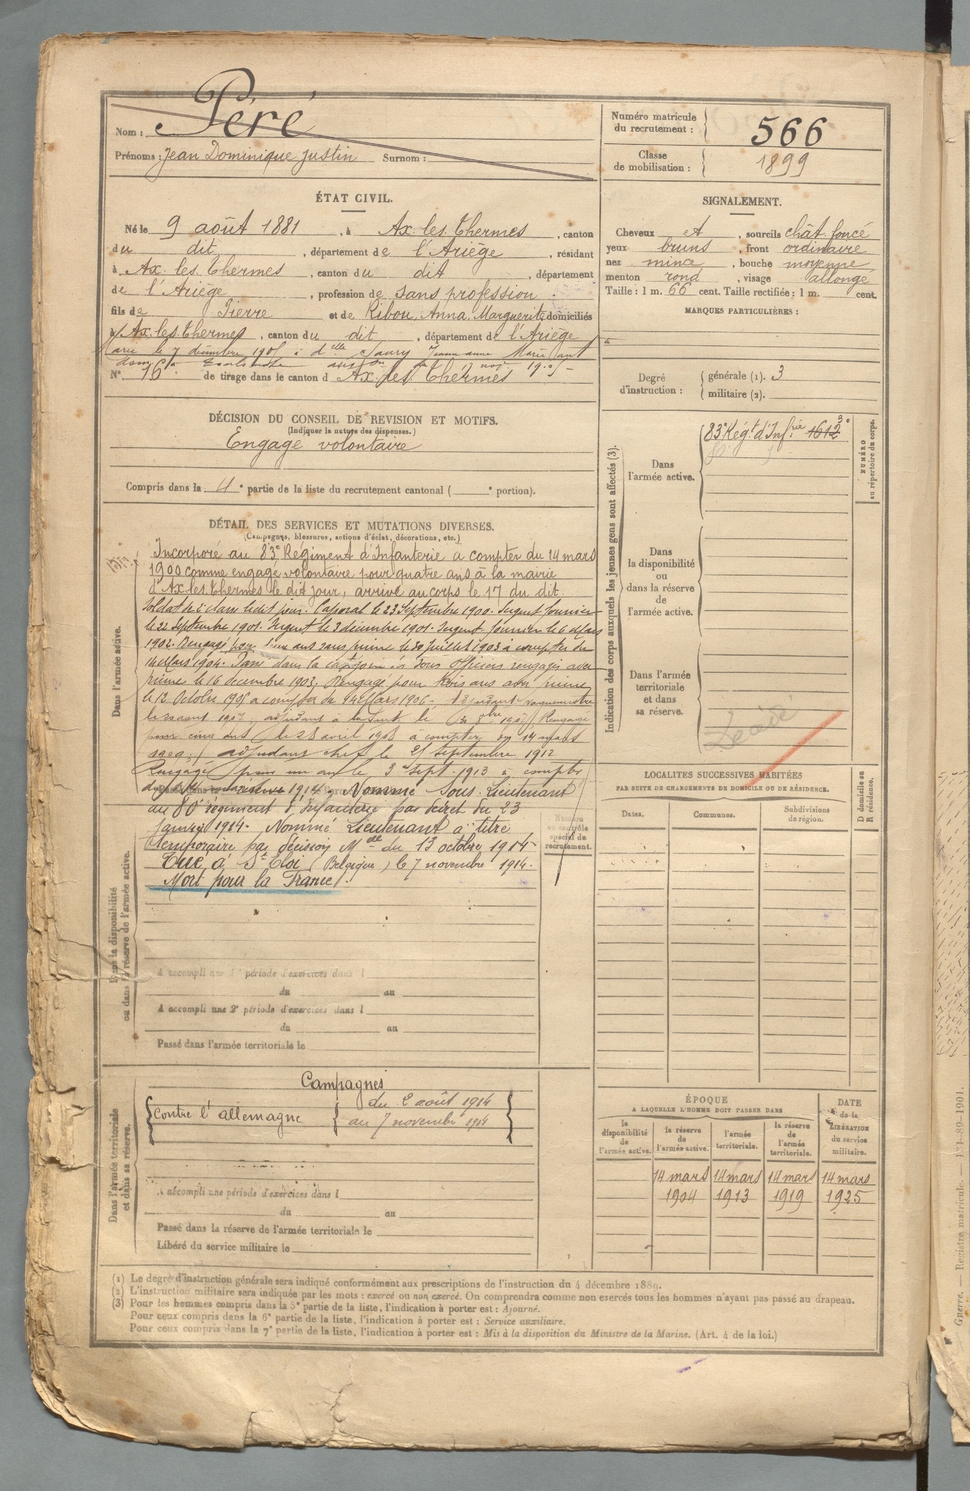 Nom : Péré
Prénoms : Jean Dominique Justin Surnom :
Numéro matricule du recrutement : 566
Classe de mobilisation : 1899
ÉTAT CIVIL.
Né le 9 août 1881, à Ax les Thermes, canton
du dit, département de l'Ariège, résidant
à Ax les Thermes, canton du dit, département
de l'Ariège, profession de sans profession
fils de Pierre et de Ribou, Anna, Marguerite domiciliés
à Ax les Thermes, canton du dit, département de l'Ariège
Marié le 7 décembre 1905 à delle Jeanne Marie
N° 76 de tirage dans le canton d'Ax les Thermes
SIGNALEMENT.
Cheveux et, sourcils chât. foncé
yeux bruns, front ordinaire
nez mince, bouche moyenne
menton rond, visage allongé
Taille : 1 m. 66 cent. Taille rectifiée : 1 m. cent.
MARQUES PARTICULIÈRES :
Degré d'instruction : générale (1). 3
militaire (2).
DÉCISION DU CONSEIL DE REVISION ET MOTIFS.
(Indiquer la nature des dispenses.)
Engagé volontaire
Compris dans la 4e partie de la liste du recrutement cantonal ( e portion).
Indication des corps auxquels les jeunes gens sont affectés (3).
NUMÉRO au répertoire du corps.
Dans l'armée active.
83e Régt d'Infrie 1612
Dans la disponibilité ou dans la réserve de l'armée active.
Dans l'armée territoriale et dans sa réserve.
Décédé
DÉTAIL DES SERVICES ET MUTATIONS DIVERSES.
(Campagnes, blessures, actions d'éclat, décorations, etc.)
Dans l'armée active.
Incorporé au 83e Régiment d'Infanterie à compter du 14 mars
1900 comme engagé volontaire pour quatre ans à la mairie
d'Ax les Thermes le dit jour, arrivé au corps le 17 du dit.
Soldat de 2e classe ledit jour. Caporal le 23 Septembre 1900. Sergent fourrier
le 22 Septembre 1901. Sergent le 3 décembre 1901. Sergent fourrier le 6 Mars
1902. Rengagé pour deux ans sans prime le 30 Juillet 1903 à compter du
14 Mars 1904. Passé dans la catégorie des Sous Officiers rengagés avec
prime le 16 décembre 1903. Rengagé pour trois ans avec prime
le 12 Octobre 1905 à compter du 14 Mars 1906. Adjudant vaguemestre
le août 1907, adjudant à la suite le 8bre 1907. Rengagé
pour cinq ans le 28 avril 1908 à compter du 14 mars
1909; adjudant chef le 21 septembre 1912
Rengagé pour un an le 3 Sept. 1913 à compter
du 14 mars 1914. Nommé Sous-Lieutenant
au 80e régiment d'infanterie par décret du 23
janvier 1914. Nommé Lieutenant à titre
temporaire par décision Mlle du 13 octobre 1914
Tué à St Eloi (Belgique) le 7 novembre 1914.
Mort pour la France.
Numéro au contrôle spécial du recrutement.
LOCALITÉS SUCCESSIVES HABITÉES
PAR SUITE DE CHANGEMENTS DE DOMICILE OU DE RÉSIDENCE.
Dates. Communes. Subdivisions de région. D domicile ou R résidence.
Dans la disponibilité ou dans la réserve de l'armée active.
A accompli une 1re période d'exercices dans l
du au
A accompli une 2e période d'exercices dans l
du au
Passé dans l'armée territoriale le
Dans l'armée territoriale et dans sa réserve.
Campagnes
Contre l'allemagne
du 2 août 1914
au 7 novembre 1914
A accompli une période d'exercices dans l
du au
Passé dans la réserve de l'armée territoriale le
Libéré du service militaire le
ÉPOQUE
A LAQUELLE L'HOMME DOIT PASSER DANS
la disponibilité de l'armée active.
la réserve de l'armée active.
l'armée territoriale.
la réserve de l'armée territoriale.
DATE de la LIBÉRATION du service militaire.
14 mars 14 mars 14 mars 14 mars
1904 1913 1919 1925
(1) Le degré d'instruction générale sera indiqué conformément aux prescriptions de l'instruction du 4 décembre 1889.
(2) L'instruction militaire sera indiquée par les mots : exercé ou non exercé. On comprendra comme non exercés tous les hommes n'ayant pas passé au drapeau.
(3) Pour les hommes compris dans la 5e partie de la liste, l'indication à porter est : Ajourné.
Pour ceux compris dans la 6e partie de la liste, l'indication à porter est : Service auxiliaire.
Pour ceux compris dans la 7e partie de la liste, l'indication à porter est : Mis à la disposition du Ministre de la Marine. (Art. 4 de la loi.)
Guerre. — Registre matricule. — 131-89-1901.